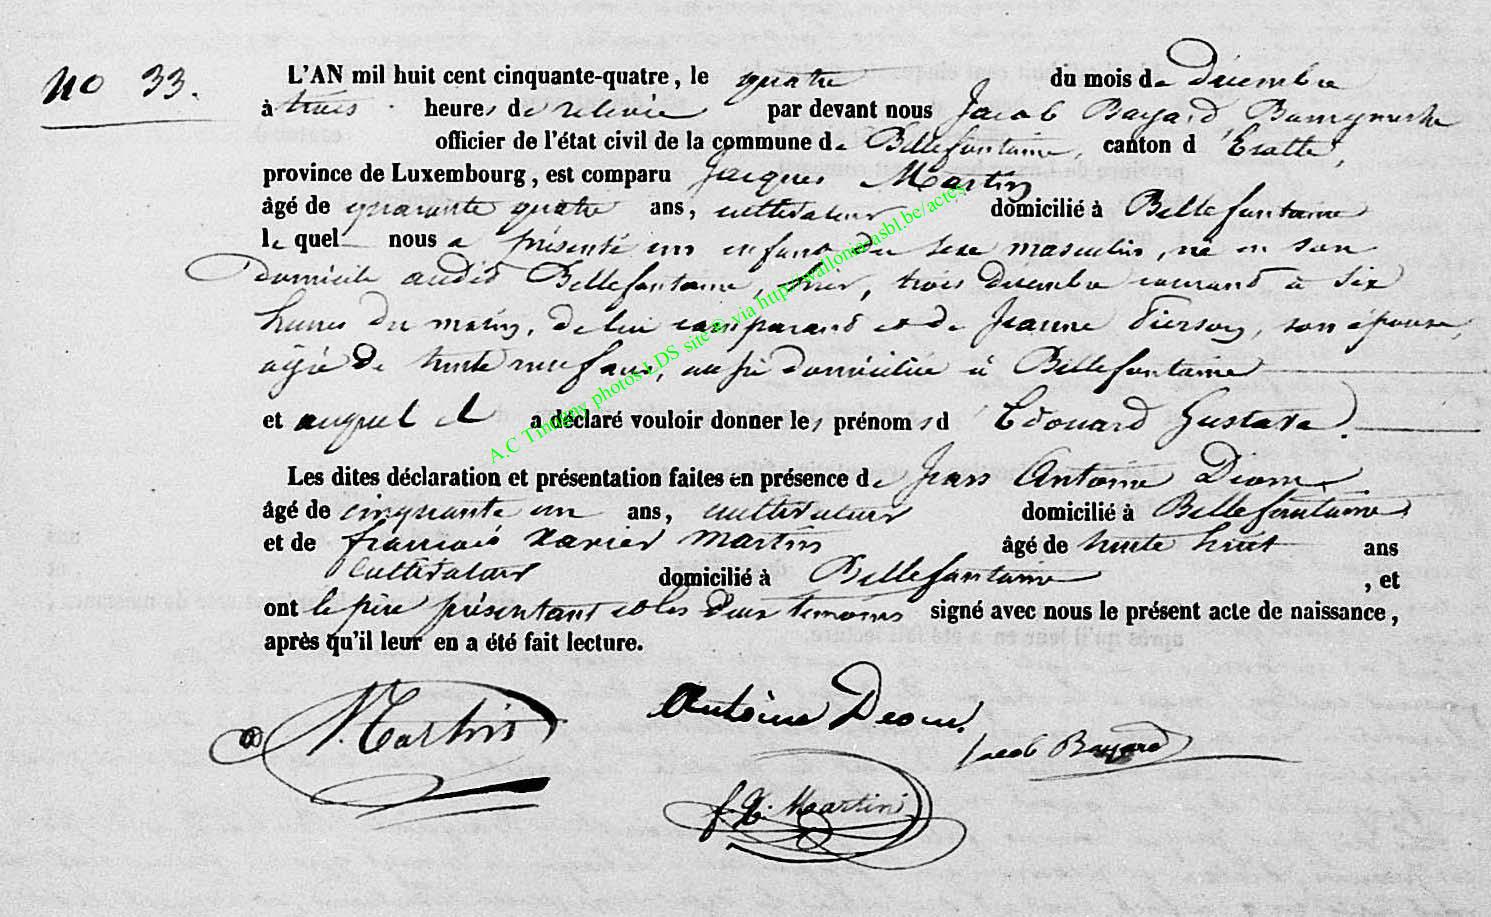 No 33.
L'AN mil huit cent cinquante-quatre, le quatre du mois de décembre
à trois heures de relevée par devant nous Jacob Bayard Bourgmestre
officier de l'état civil de la commune de Bellefontaine, canton d'Etalle,
province de Luxembourg, est comparu Jacques Martin
âgé de quarante quatre ans, cultivateur domicilié à Bellefontaine
lequel nous a présenté un enfant du sexe masculin, né en son
domicile audit Bellefontaine, hier, trois décembre courant à six
heures du matin, de lui comparant et de Jeanne Pierson, son épouse,
agée de trente neuf ans, aussi domiciliée à Bellefontaine
et auquel il a déclaré vouloir donner les prénoms d'Edouard Gustave.
Les dites déclaration et présentation faites en présence de Jean Antoine Deom
âgé de cinquante un ans, cultivateur domicilié à Bellefontaine
et de françois Xavier Martin âgé de trente huit ans
cultivateur domicilié à Bellefontaine, et
ont le père présentant et les deux temoins signé avec nous le présent acte de naissance,
après qu'il leur en a été fait lecture.
J. Martin
Antoine Deom.
Jacob Bayard
f. X. Martin
A.C Tintigny photos LDS site © via http://wallonia.asbl.be/actes